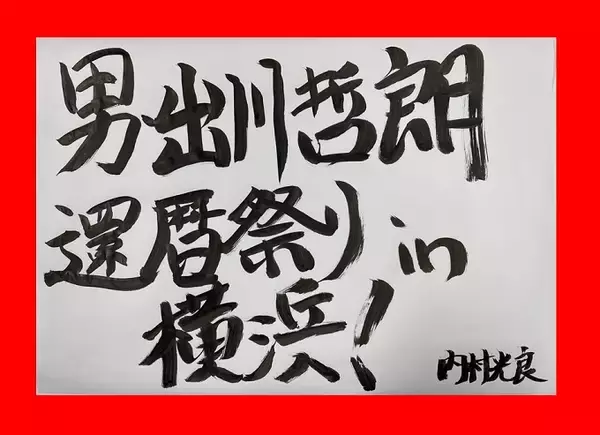 男出川哲朗
還暦祭り in
横浜!
内村光良